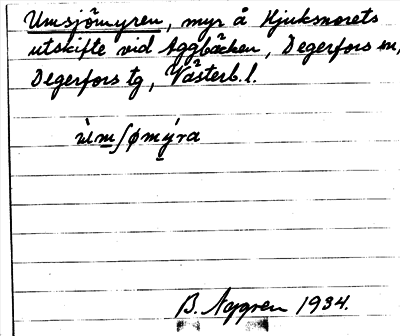 Umsjömyren, myr å Hjuksnorets
utskifte vid Aggbäcken, Degerfors sn,
Degerfors tg, Västerb. l.
ùmʃømýra
B. Nygren 1934.